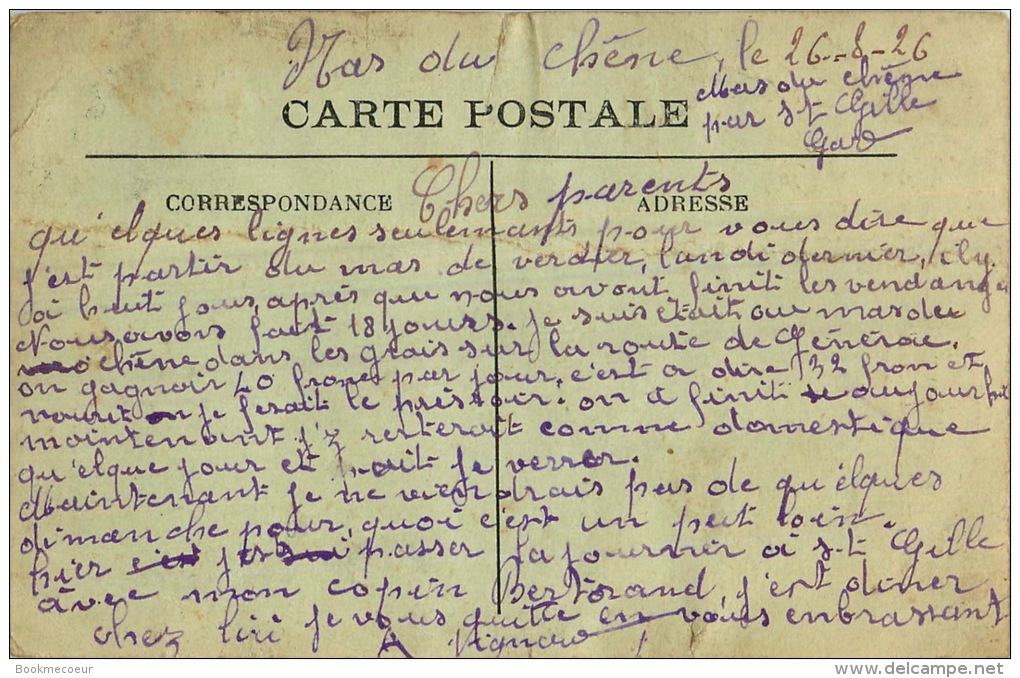 Mas du chêne, le 26-8-26
CARTE POSTALE
Mas du chêne
par St Gille
Gard
CORRESPONDANCE
ADRESSE
Chers parents
qu'elques lignes seulemants pour vous dire que
j'est partir du mas de verdier, lundi dernier, il y
a huit jous, après que nous avont finit les vendange
Nous avons fait 18 jours. je suis était au mas du
chêne dans les grais sur la route de Générac.
on gagnair 40 franc par jour, c'est a dire 32 fran et
nourit je ferait le pressoir. on a finit aujourhui
maintenant j'z resterait comme domestique
qu'elque jour et puit je verrer.
Maintenant je ne viendrais pas de qu'élques
dimanche pour, quoi c'est un peut loin.
hier passer la journer a St Gille
avec mon copin Bertrand, j'est diner
chez lui je vous quitte en vous enbrassant
A Vignau
Bookmecoeur
delcampe.net